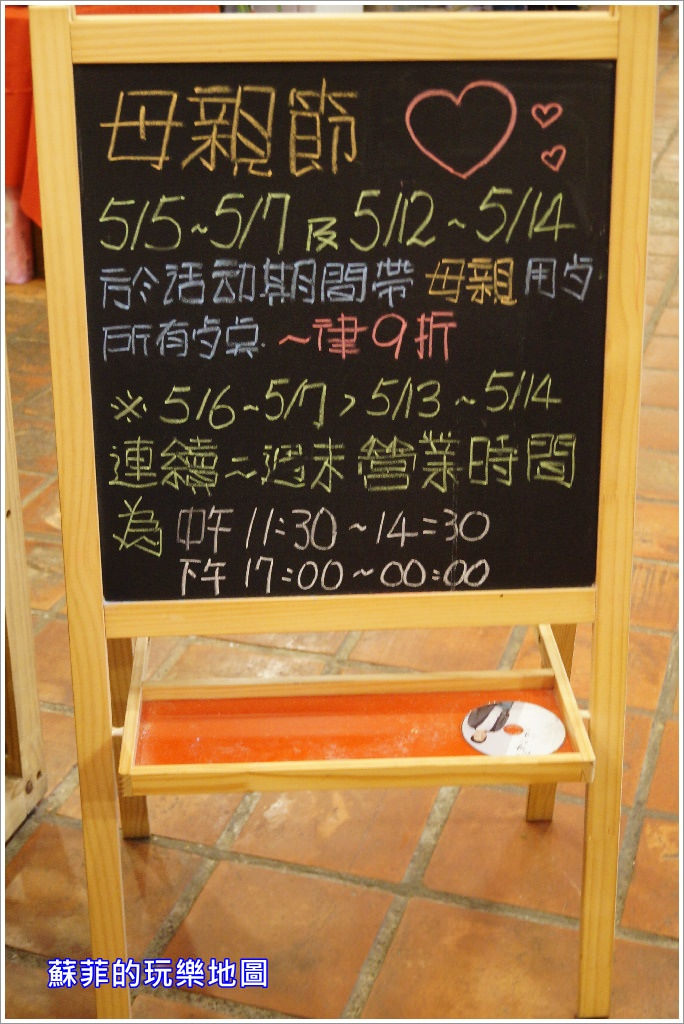 母親節
5/5~5/7 及 5/12~5/14
於活动期間帶母親用歺
所有歺桌 ~律9折
※ 5/6~5/7 , 5/13~5/14
連續二週末營業時間
為 中午 11:30~14:30
下午 17:00~00:00
蘇菲的玩樂地圖